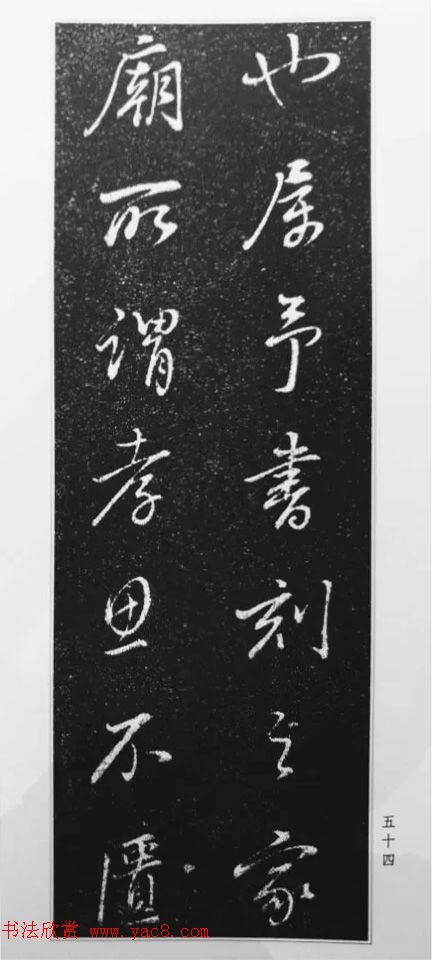 也属予書刻之家
廟所謂孝思不匱
五十四
书法欣赏 www.yac8.com